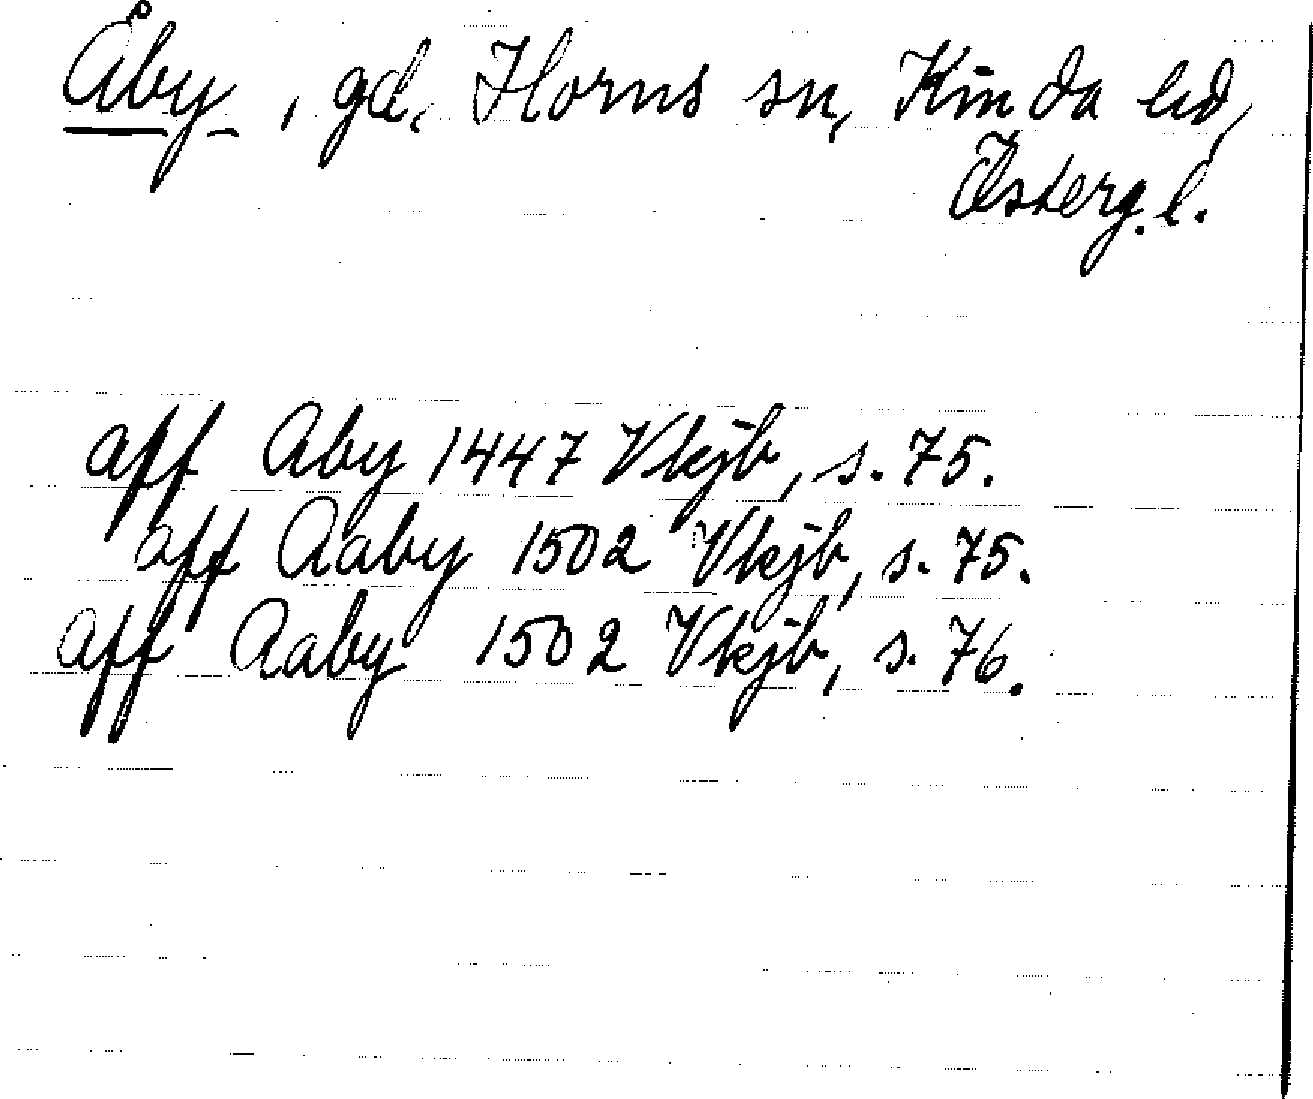 Åby, gd, Horns sn, Kinda hd,
Österg. l.
aff Aby 1447 Vkjb, s. 75.
aff Aaby 1502 Vkjb, s. 75.
aff Aaby 1502 Vkjb, s. 76.